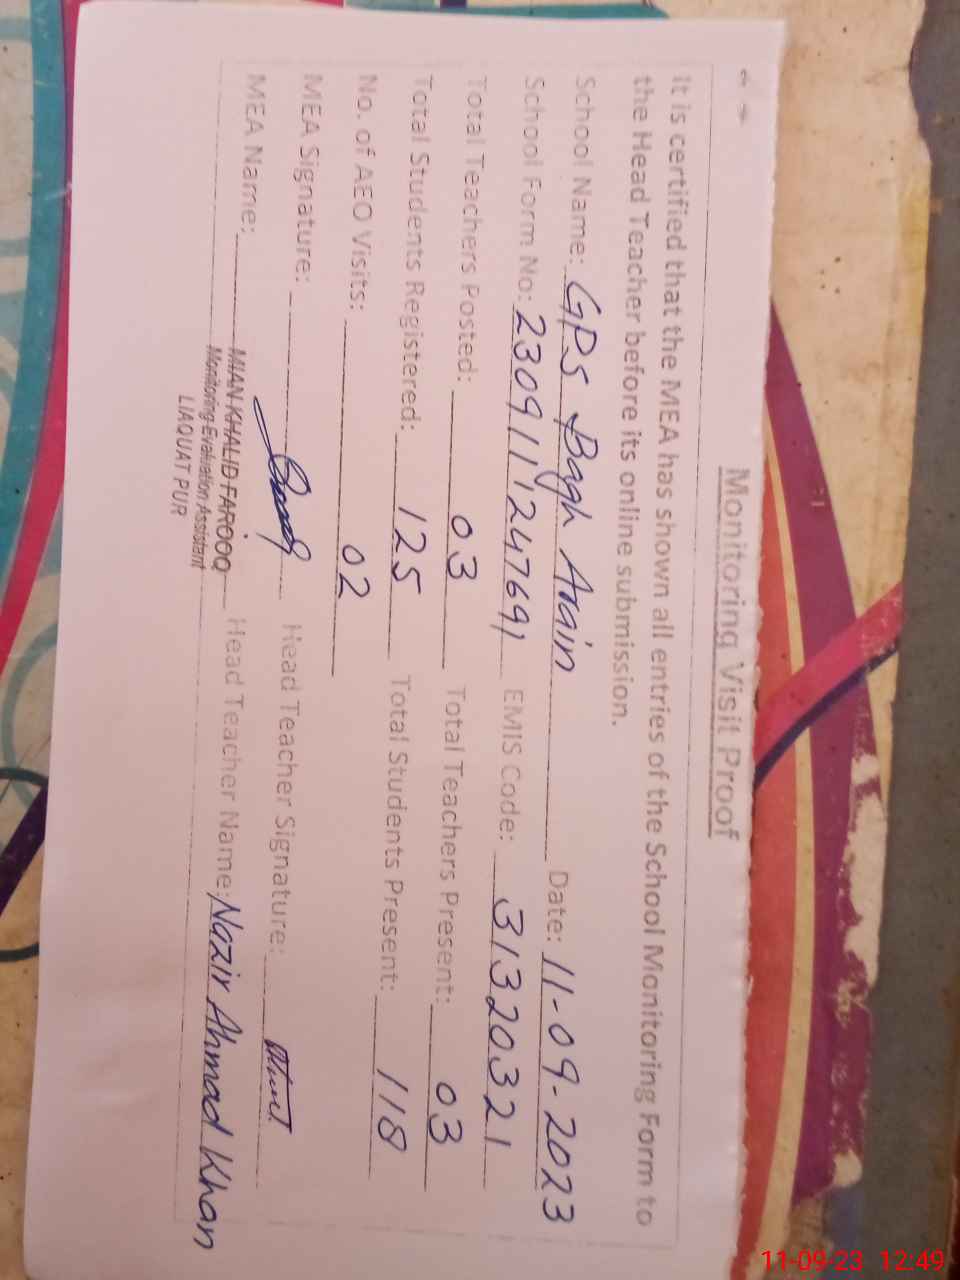 Monitoring Visit Proof
It is certified that the MEA has shown all entries of the School Monitoring Form to
the Head Teacher before its online submission.
School Name: GPS Bagh Arain Date: 11-09-2023
School Form No: 2309111247691 EMIS Code: 31320321
Total Teachers Posted: 03 Total Teachers Present: 03
Total Students Registered: 125 Total Students Present: 118
No. of AEO Visits: 02
MEA Signature: Head Teacher Signature:
MEA Name: MIAN KHALID FAROOQ Head Teacher Name: Nazir Ahmad Khan
Monitoring Evaluation Assistant
LIAQUAT PUR
11-09-23 12:49